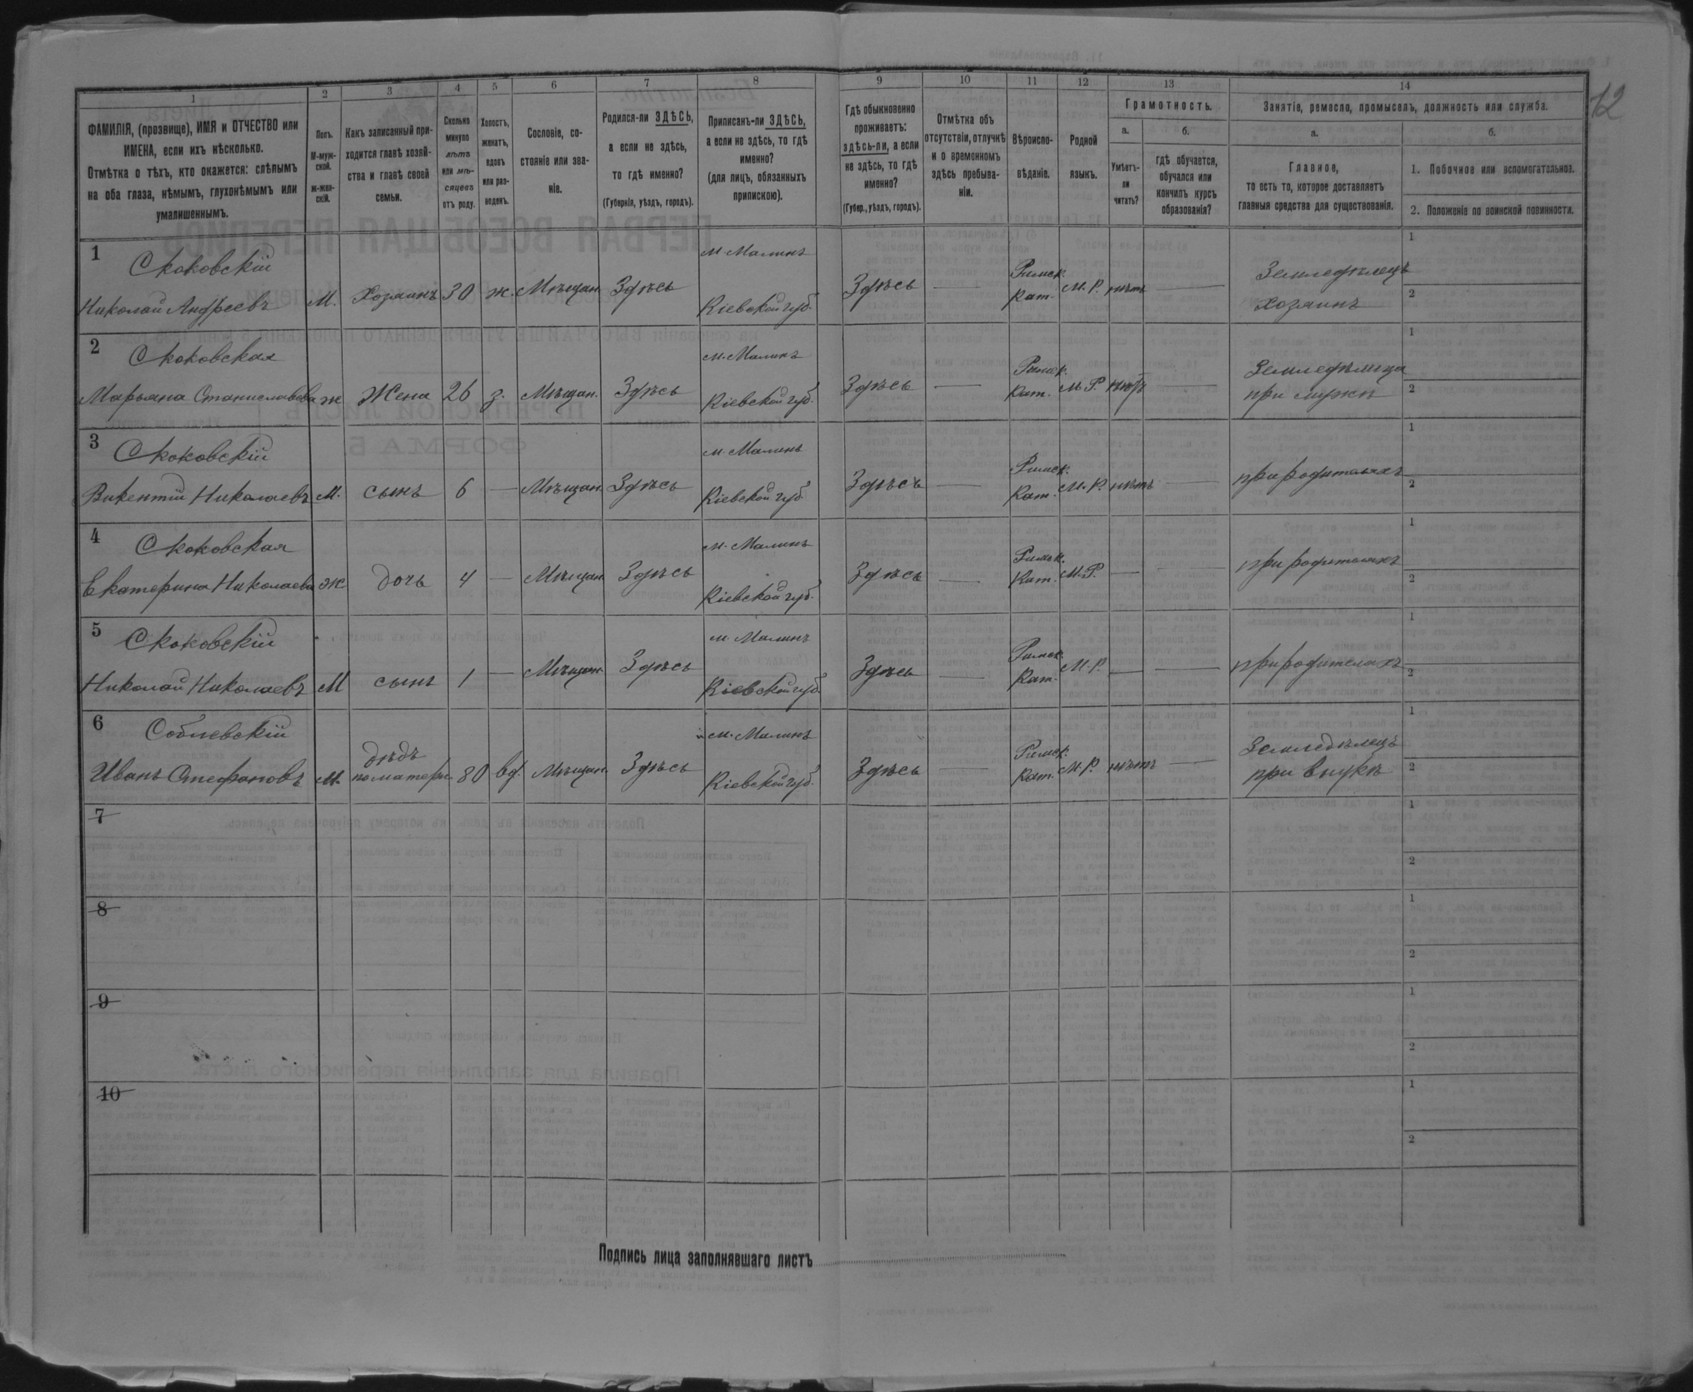 12
1 2 3 4 5 6 7 8 9 10 11 12 13 14
ФАМИЛІЯ, (прозвище), ИМЯ и ОТЧЕСТВО или
ИМЕНА, если ихъ нѣсколько.
Отмѣтка о тѣхъ, кто окажется: слѣпымъ
на оба глаза, нѣмымъ, глухонѣмымъ или
умалишеннымъ.
Полъ.
М-муж-
ской.
ж-жен-
скій.
Какъ записанный при-
ходится главѣ хозяй-
ства и главѣ своей
семьи.
Сколько
минуло
лѣтъ
или мѣ-
сяцевъ
отъ роду.
Холостъ,
женатъ,
вдовъ
или раз-
веденъ.
Сословіе, со-
стояніе или зва-
ніе.
Родился-ли ЗДѢСЬ,
а если не здѣсь,
то гдѣ именно?
(Губернія, уѣздъ, городъ).
Приписанъ-ли ЗДѢСЬ,
а если не здѣсь, то гдѣ
именно?
(для лицъ, обязанныхъ
припискою).
Гдѣ обыкновенно
проживаетъ:
здѣсь-ли, а если
не здѣсь, то гдѣ
именно?
(Губер., уѣздъ, городъ).
Отмѣтка объ
отсутствіи, отлучкѣ
и о временномъ
здѣсь пребыва-
ніи.
Вѣроиспо-
вѣданіе.
Родной
языкъ.
Грамотность.
а.
Умѣетъ-
ли
читать?
б.
гдѣ обучается,
обучался или
кончилъ курсъ
образованія?
Занятіе, ремесло, промыселъ, должность или служба.
а.
Главное,
то есть то, которое доставляетъ
главныя средства для существованія.
б.
1. Побочное или вспомогательное.
2. Положеніе по воинской повинности.
1 Скоковскій
Николай Андреевъ М. Хозяинъ 30 ж. Мѣщан. Здѣсь м Малинъ
Кіевской губ. Здѣсь — Римск.
Кат. М. Р. нѣтъ — Земледѣлецъ
хозяинъ 1
2
2 Скоковская
Марьяна Станиславова ж Жена 26 з. Мѣщан. Здѣсь м. Малинъ
Кіевской губ. Здѣсь — Римск.
Кат. М. Р. нѣтъ — Земледѣлица
при мужѣ 1
2
3 Скоковскій
Викентій Николаевъ М. сынъ 6 — Мѣщан. Здѣсь м. Малинъ
Кіевской губ. Здѣсь — Римск.
Кат. М. Р. нѣтъ — при родителяхъ 1
2
4 Скоковская
Екатерина Николаева ж. дочь 4 — Мѣщан. Здѣсь м. Малинъ
Кіевской губ. Здѣсь — Римск.
Кат. М. Р. — — при родителяхъ 1
2
5 Скоковскій
Николай Николаевъ М сынъ 1 — Мѣщан. Здѣсь м. Малинъ
Кіевской губ. Здѣсь — Римск.
Кат. М. Р. — — при родителяхъ 1
2
6 Соблевскій
Иванъ Стефановъ М. дѣдъ
по матери 80 вд. Мѣщан. Здѣсь м. Малинъ
Кіевской губ. Здѣсь — Римск.
Кат. М. Р. нѣтъ — Земледѣлецъ
при внукѣ 1
2
7 1
2
8 1
2
9 1
2
10 1
2
Подпись лица заполнявшаго листъ